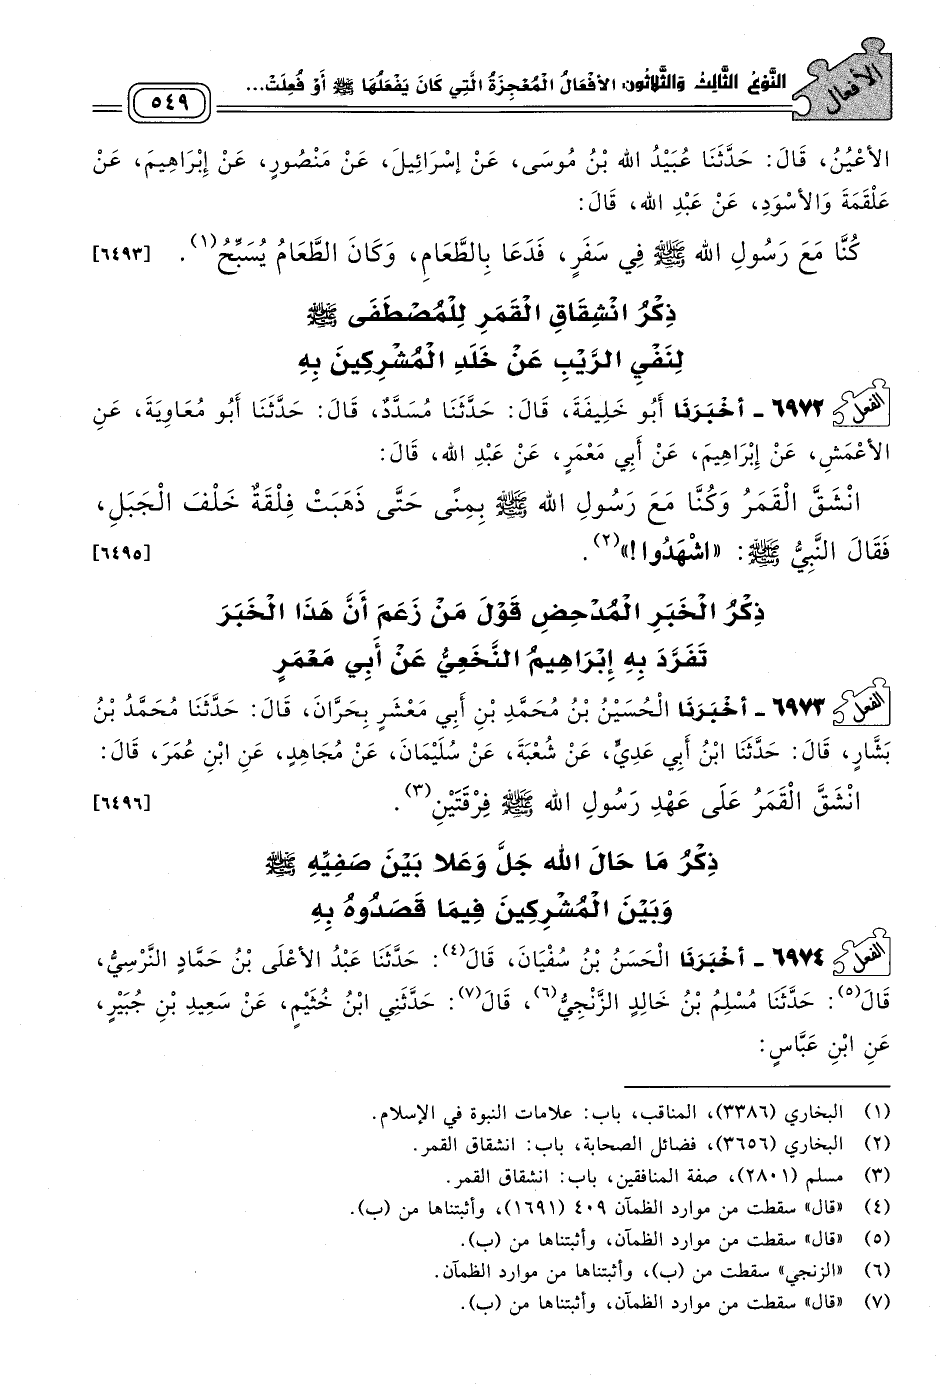 الأفعال
النَّوْعُ الثَّالِثُ وَالثَّلاثُون: الأَفْعَالُ الْمُعْجِزَةُ الَّتِي كَانَ يَفْعَلُهَا ﷺ أَوْ فُعِلَتْ...
٥٤٩
الأَعْيُنُ، قَالَ: حَدَّثَنَا عُبَيْدُ الله بْنُ مُوسَى، عَنْ إِسْرَائِيلَ، عَنْ مَنْصُورٍ، عَنْ إِبْرَاهِيمَ، عَنْ
عَلْقَمَةَ وَالأَسْوَدِ، عَنْ عَبْدِ الله، قَالَ:
كُنَّا مَعَ رَسُولِ الله ﷺ فِي سَفَرٍ، فَدَعَا بِالطَّعَامِ، وَكَانَ الطَّعَامُ يُسَبِّحُ(١). [٦٤٩٣]
ذِكْرُ انْشِقَاقِ الْقَمَرِ لِلْمُصْطَفَى ﷺ
لِنَفْيِ الرَّيْبِ عَنْ خَلَدِ الْمُشْرِكِينَ بِهِ
الفعل ٦٩٧٢ - أَخْبَرَنَا أَبُو خَلِيفَةَ، قَالَ: حَدَّثَنَا مُسَدَّدٌ، قَالَ: حَدَّثَنَا أَبُو مُعَاوِيَةَ، عَنِ
الأَعْمَشِ، عَنْ إِبْرَاهِيمَ، عَنْ أَبِي مَعْمَرٍ، عَنْ عَبْدِ الله، قَالَ:
انْشَقَّ الْقَمَرُ وَكُنَّا مَعَ رَسُولِ الله ﷺ بِمِنًى حَتَّى ذَهَبَتْ فِلْقَةٌ خَلْفَ الْجَبَلِ،
فَقَالَ النَّبِيُّ ﷺ: «اشْهَدُوا!»(٢). [٦٤٩٥]
ذِكْرُ الْخَبَرِ الْمُدْحِضِ قَوْلَ مَنْ زَعَمَ أَنَّ هَذَا الْخَبَرَ
تَفَرَّدَ بِهِ إِبْرَاهِيمُ النَّخَعِيُّ عَنْ أَبِي مَعْمَرٍ
الفعل ٦٩٧٣ - أَخْبَرَنَا الْحُسَيْنُ بْنُ مُحَمَّدِ بْنِ أَبِي مَعْشَرٍ بِحَرَّانَ، قَالَ: حَدَّثَنَا مُحَمَّدُ بْنُ
بَشَّارٍ، قَالَ: حَدَّثَنَا ابْنُ أَبِي عَدِيٍّ، عَنْ شُعْبَةَ، عَنْ سُلَيْمَانَ، عَنْ مُجَاهِدٍ، عَنِ ابْنِ عُمَرَ، قَالَ:
انْشَقَّ الْقَمَرُ عَلَى عَهْدِ رَسُولِ الله ﷺ فِرْقَتَيْنِ(٣). [٦٤٩٦]
ذِكْرُ مَا حَالَ الله جَلَّ وَعَلا بَيْنَ صَفِيِّهِ ﷺ
وَبَيْنَ الْمُشْرِكِينَ فِيمَا قَصَدُوهُ بِهِ
الفعل ٦٩٧٤ - أَخْبَرَنَا الْحَسَنُ بْنُ سُفْيَانَ، قَالَ(٤): حَدَّثَنَا عَبْدُ الأَعْلَى بْنُ حَمَّادٍ النَّرْسِيُّ،
قَالَ(٥): حَدَّثَنَا مُسْلِمُ بْنُ خَالِدٍ الزَّنْجِيُّ(٦)، قَالَ(٧): حَدَّثَنِي ابْنُ خُثَيْمٍ، عَنْ سَعِيدِ بْنِ جُبَيْرٍ،
عَنِ ابْنِ عَبَّاسٍ:
(١) البخاري (٣٣٨٦)، المناقب، باب: علامات النبوة في الإسلام.
(٢) البخاري (٣٦٥٦)، فضائل الصحابة، باب: انشقاق القمر.
(٣) مسلم (٢٨٠١)، صفة المنافقين، باب: انشقاق القمر.
(٤) «قال» سقطت من موارد الظمآن ٤٠٩ (١٦٩١)، وأثبتناها من (ب).
(٥) «قال» سقطت من موارد الظمآن، وأثبتناها من (ب).
(٦) «الزنجي» سقطت من (ب)، وأثبتناها من موارد الظمآن.
(٧) «قال» سقطت من موارد الظمآن، وأثبتناها من (ب).